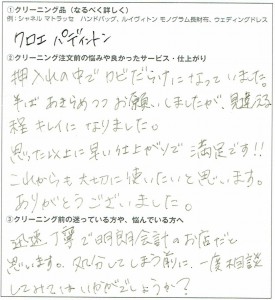 ①クリーニング品(なるべく詳しく)
例:シャネル マトラッセ ハンドバッグ、ルイヴィトン モノグラム長財布、ウェディングドレス
クロエ パディントン
②クリーニング注文前の悩みや良かったサービス・仕上がり
押入れの中でカビだらけになっていました。
半ばあきらめつつお願いしましたが、見違える
程キレイになりました。
思った以上に早い仕上がりで満足です!!
これからも大切に使いたいと思います。
ありがとうございました。
③クリーニング前の迷っている方や、悩んでいる方へ
迅速丁寧で明朗会計のお店だと
思います。処分してしまう前に、一度相談
してみてはいかがでしょうか?